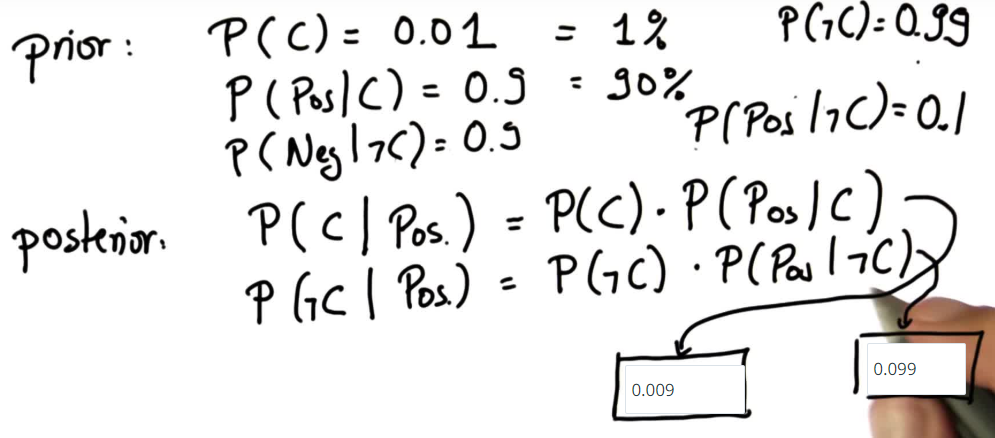 prior: P(C) = 0.01 = 1% P(¬C) = 0.99
P(Pos|C) = 0.9 = 90%
P(Neg|¬C) = 0.9 P(Pos|¬C) = 0.1
posterior: P(C|Pos.) = P(C) · P(Pos|C)
P(¬C|Pos.) = P(¬C) · P(Pos|¬C)
0.009 0.099